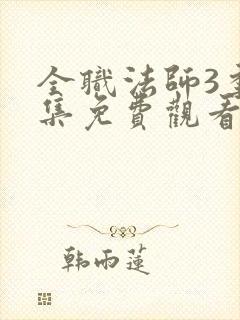 全職法師3季
集免費觀看
韩雨蓮